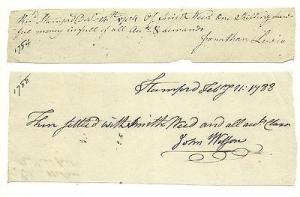 1784
Recd Stamford Decr 14th 1784 Of Smith Weed One Shilling
money in full of all Acts & demands
Jonathan Lewis
1788
Stamford Feby 21. 1788
Then settled with Smith Weed and all act Clear
John Wilson